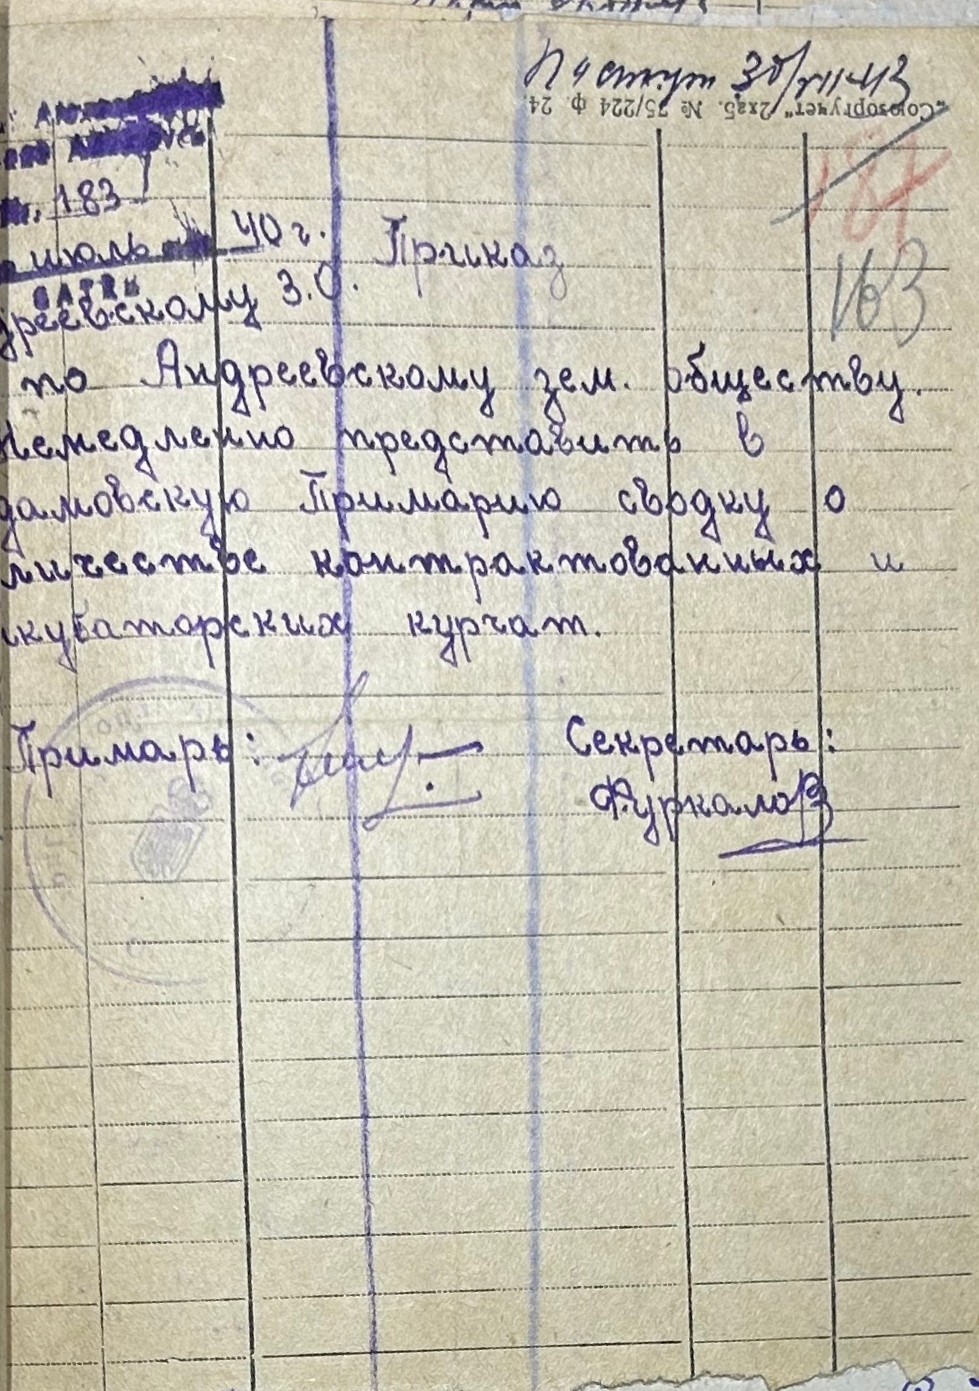 30/VII-43
"Союзоргучет" 2хаб. № 75/224 ф 24
187
183
163
июль 40 г.
Приказ
дреевскому З.О.
по Андреевскому зем. обществу.
Немедленно представить в
дамовскую Примарию сводку о
личестве контрактованных и
нкубаторских курчат.
Примарь: Секретарь:
Фуркалов